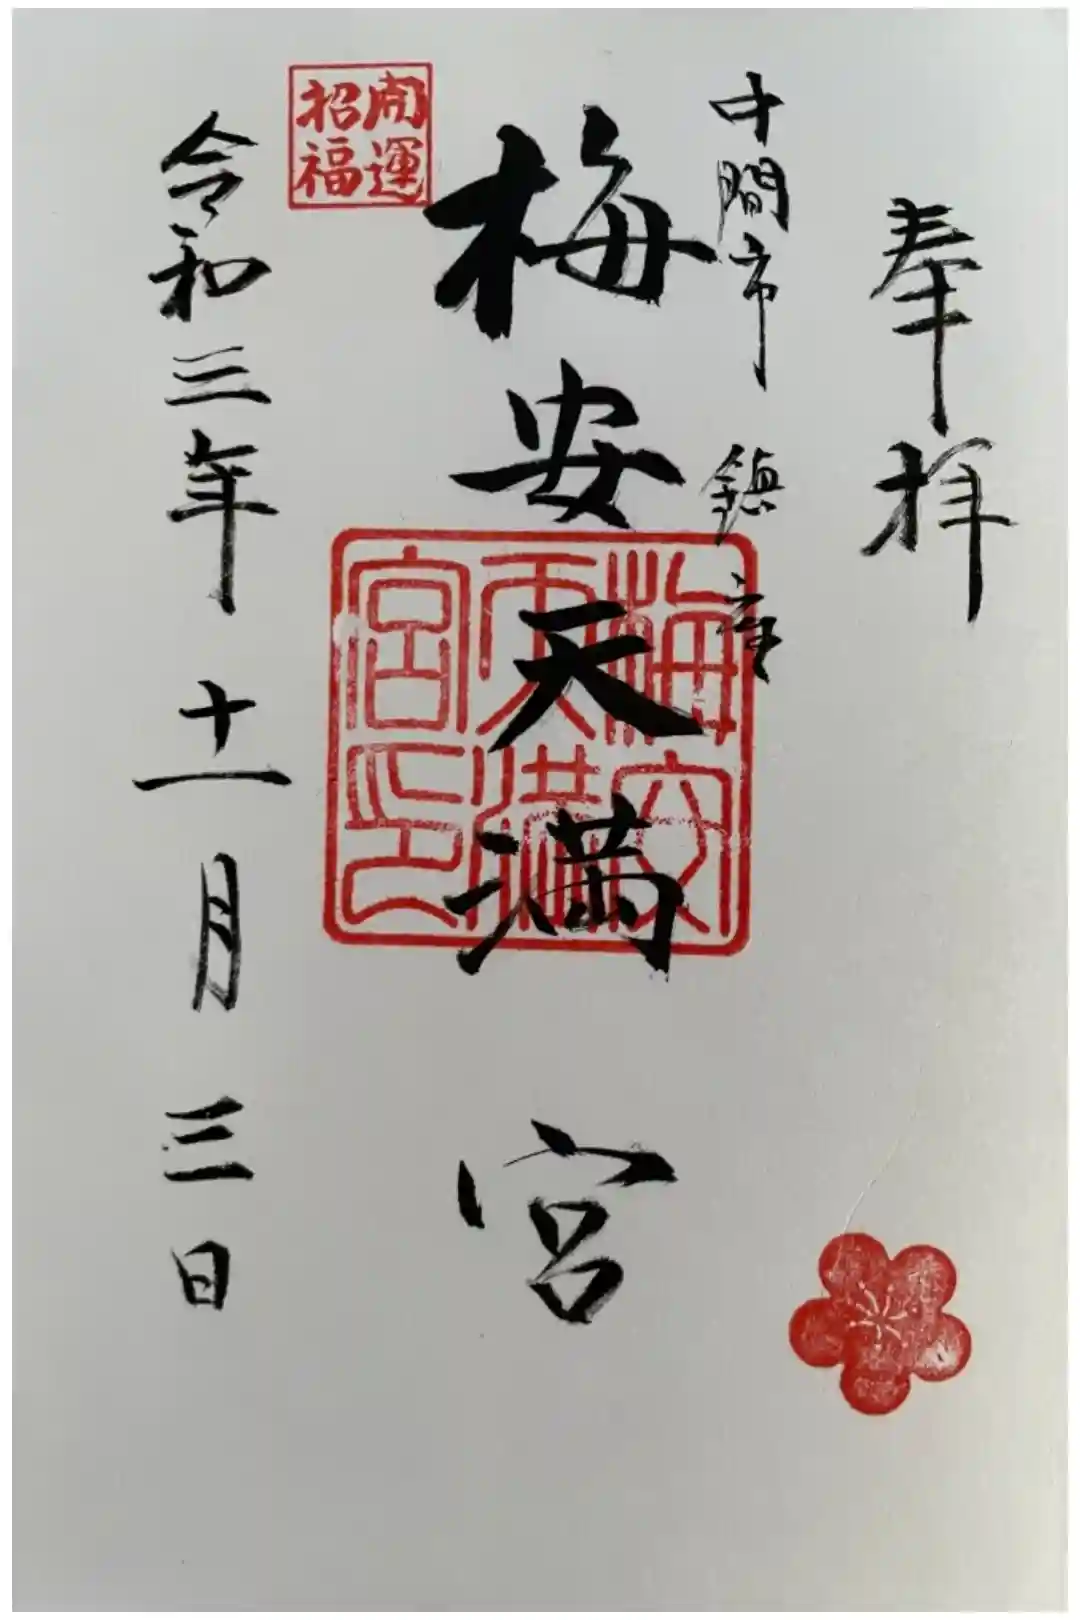 奉拝
中間市鎮座
梅安天満宮
梅安
天満
宮印
開運
招福
令和三年十一月三日